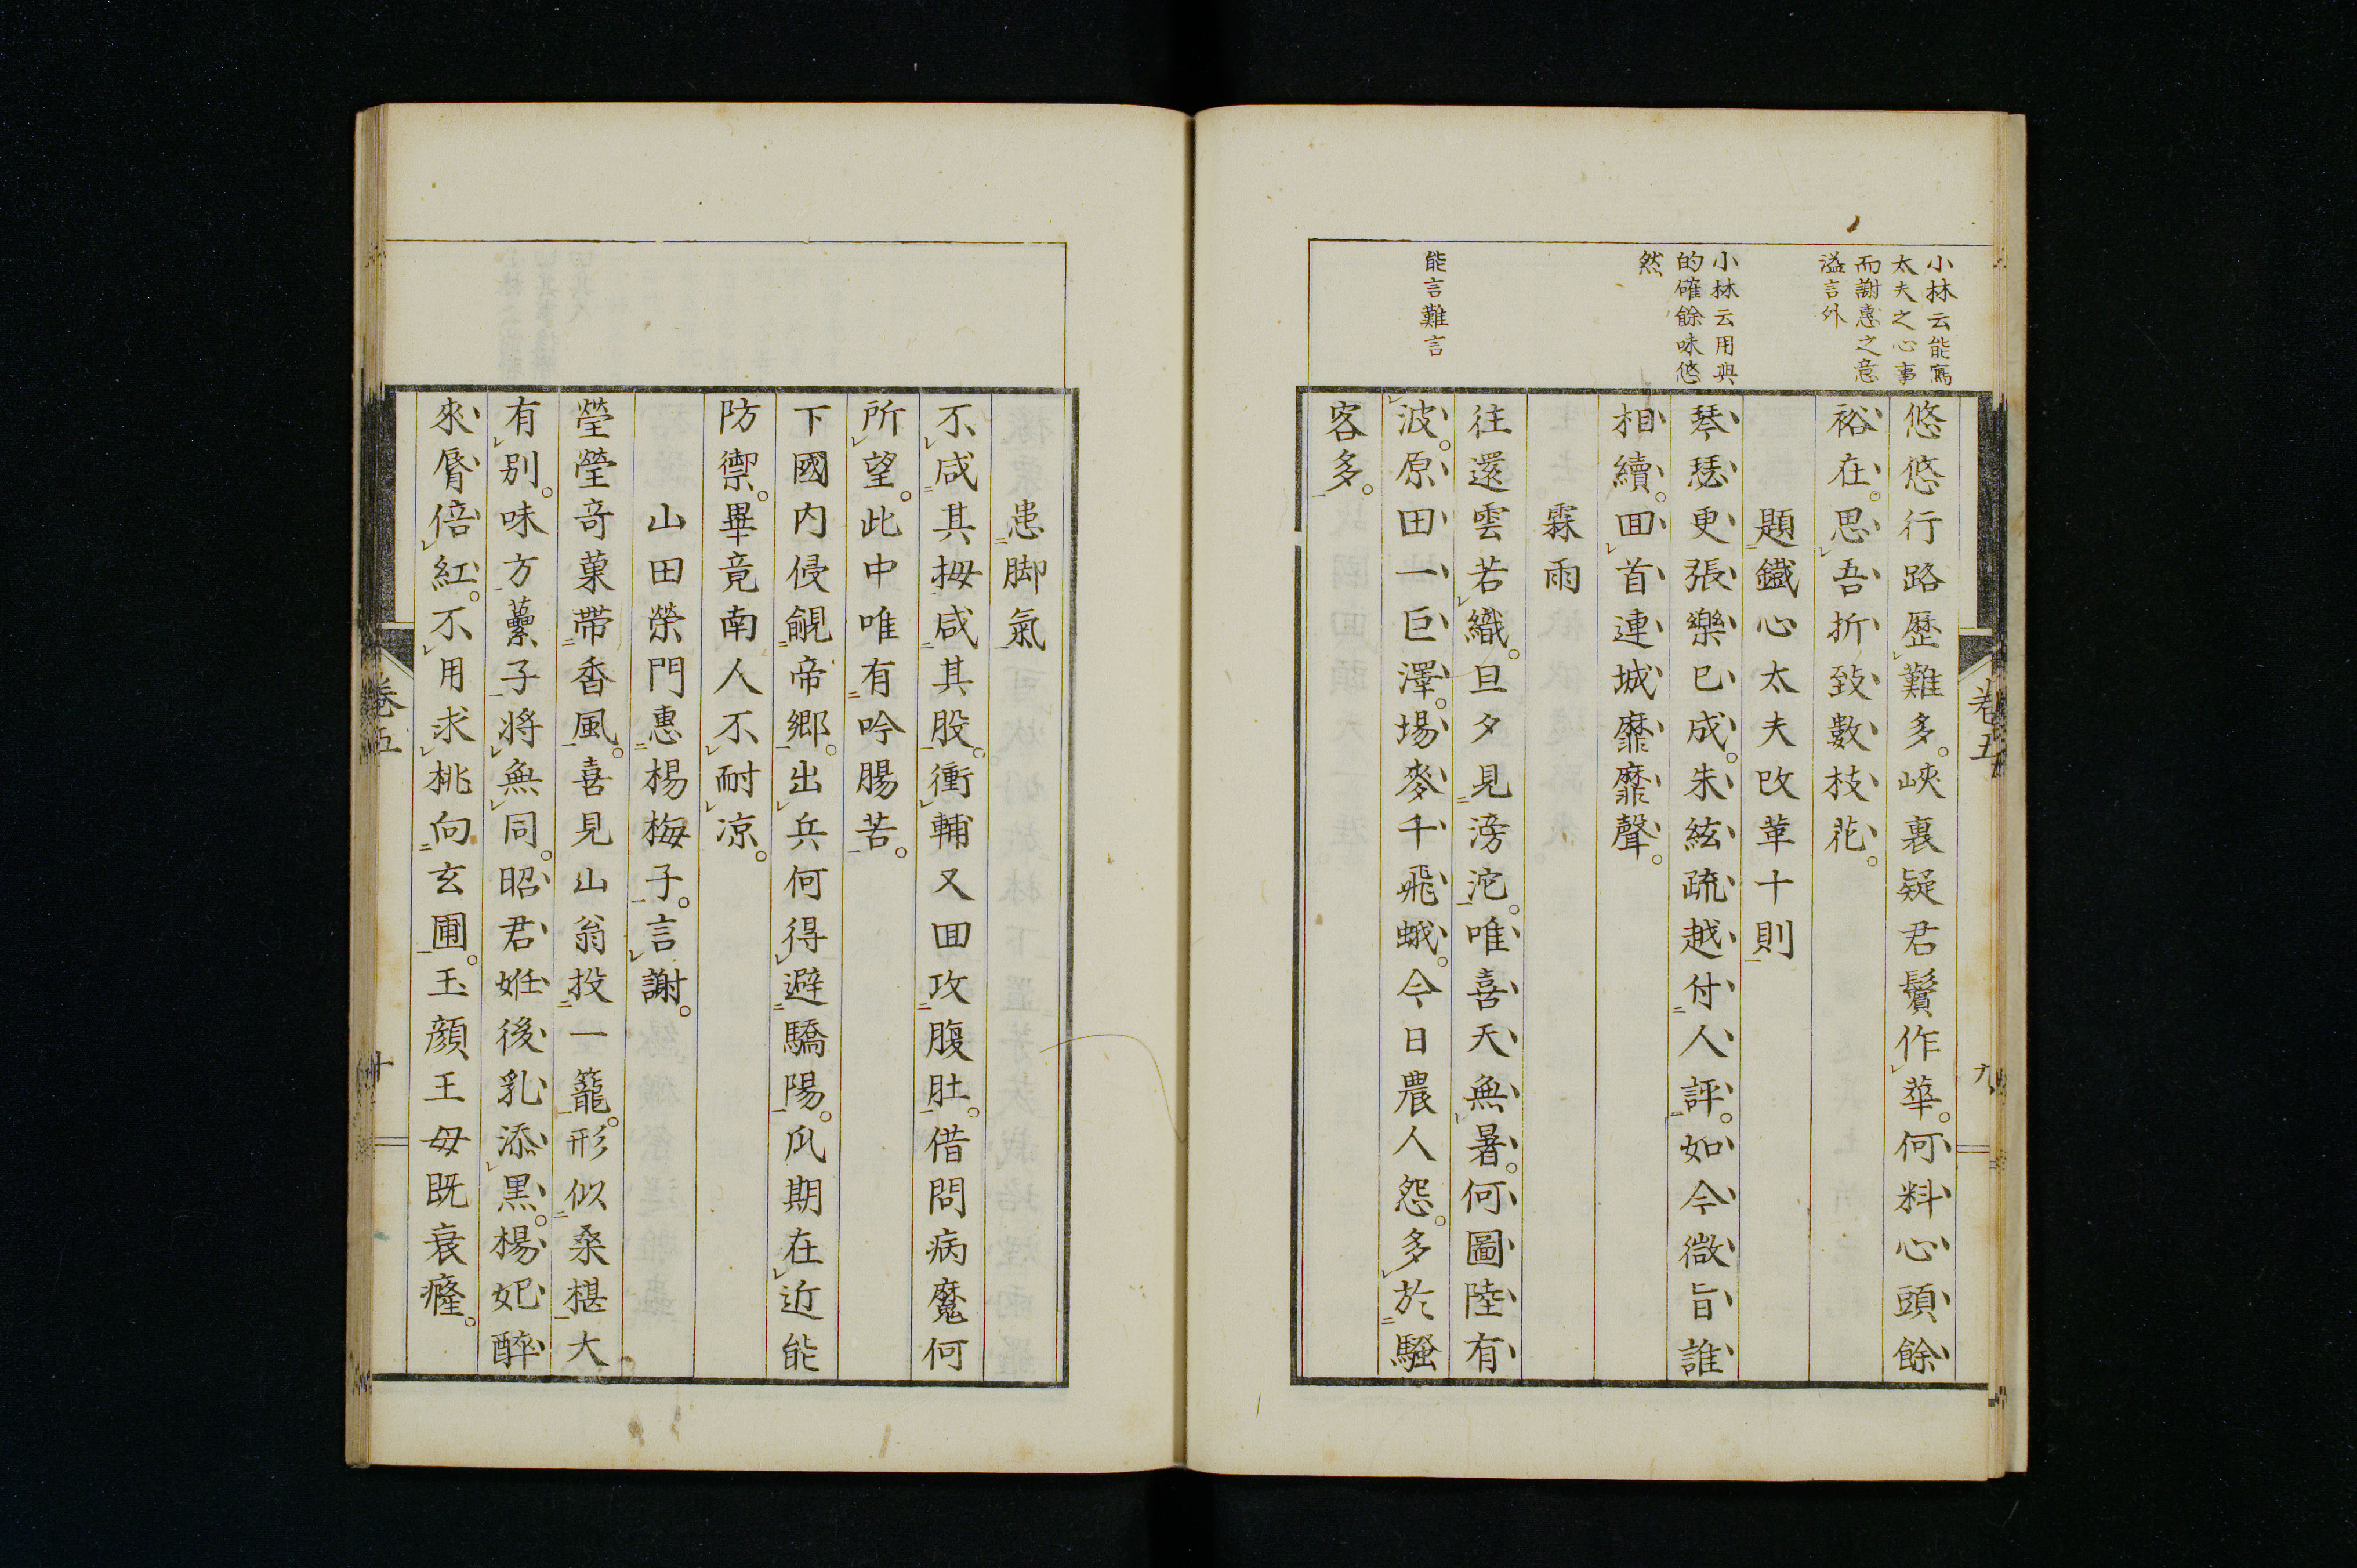 小林云能寫
太夫之心事
而謝惠之意
溢言外
小林云用典
的確餘味悠
然
能言難言
悠悠行路歷難多。峽裏疑君鬢作華。何料心頭餘
裕在。思吾折致數枝花。
題鐵心太夫改革十則
琴瑟更張樂已成。朱絃疏越付人評。如今微旨誰
相續。回首連城靡靡聲。
霖雨
往還雲若織。旦夕見滂沱。唯喜天無暑。何圖陸有
波。原田一巨澤。場麥千飛蛾。今日農人怨。多於騷
客多。
卷五
九
患脚氣
不咸其拇咸其股。衝輔又回攻腹肚。借問病魔何
所望。此中唯有吟腸苦。
下國內侵覦帝鄉。出兵何得避驕陽。瓜期在近能
防禦。畢竟南人不耐凉。
山田榮門惠楊梅子。言謝。
瑩瑩奇菓帶香風。喜見山翁投一籠。形似桑椹大
有別。味方蘡子將無同。昭君妊後乳添黑。楊妃醉
來脣倍紅。不用求桃向玄圃。玉顔王母既衰癃。
卷五
十